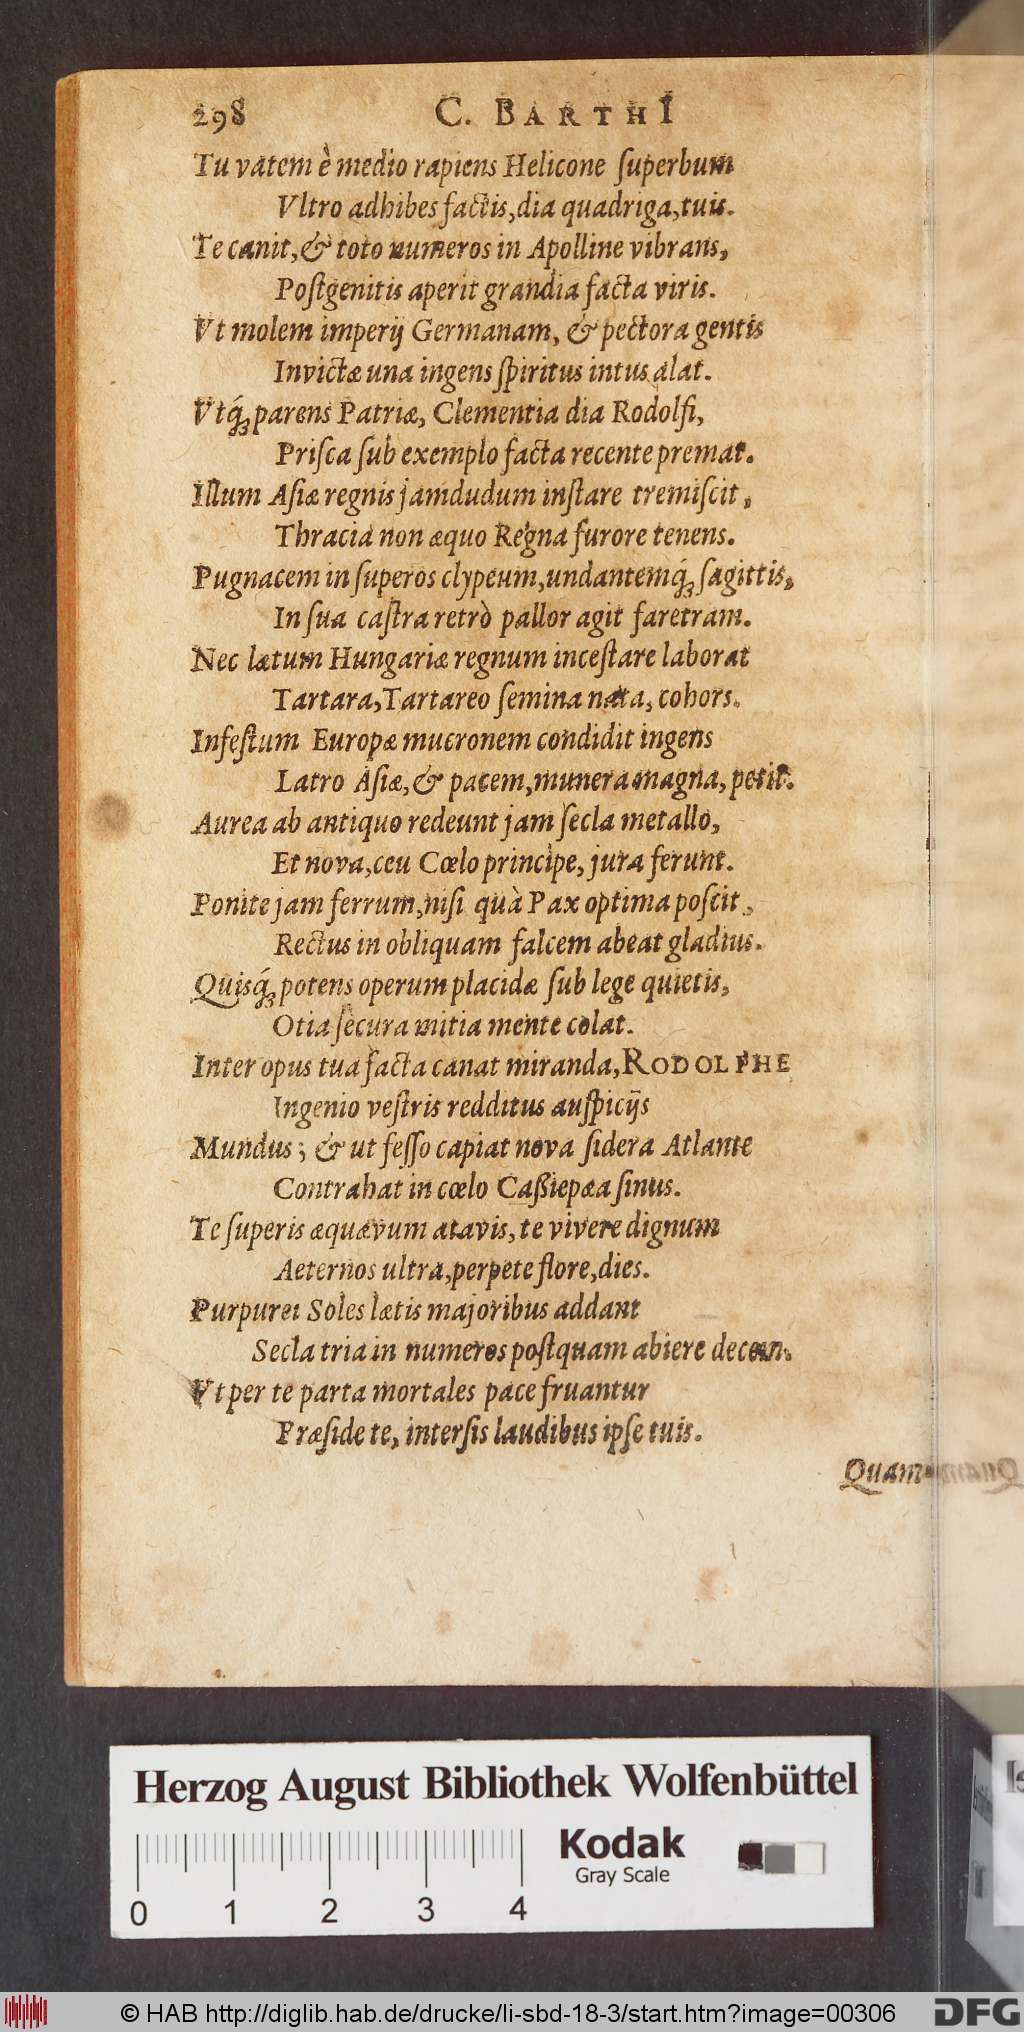 298 C. BARTHI
Tu vatem è medio rapiens Helicone ſuperbum
Vltro adhibes factis, dia quadriga, tuis.
Te canit, & toto numeros in Apolline vibrans,
Poſtgenitis aperit grandia facta viris.
Vt molem imperij Germanam, & pectora gentis
Invictæ una ingens ſpiritus intus alat.
Vtq́; parens Patriæ, Clementia dia Rodolfi,
Priſca ſub exemplo facta recente premat.
Illum Aſiæ regnis jamdudum inſtare tremiſcit,
Thracia non æquo Regna furore tenens.
Pugnacem in ſuperos clypeum, undantemq́; ſagittis,
In ſua caſtra retrò pallor agit faretram.
Nec lætum Hungariæ regnum inceſtare laborat
Tartara, Tartareo ſemina nata, cohors.
Infeſtum Europæ mucronem condidit ingens
Latro Aſiæ, & pacem, munera magna, petit.
Aurea ab antiquo redeunt jam ſecla metallo,
Et nova, ceu Cœlo principe, jura ferunt.
Ponite jam ferrum, niſi quà Pax optima poſcit,
Rectus in obliquam falcem abeat gladius.
Quisq́; potens operum placidæ ſub lege quietis,
Otia ſecura mitia mente colat.
Inter opus tua facta canat miranda, RODOLPHE
Ingenio veſtris redditus auſpicijs
Mundus; & ut feſſo capiat nova ſidera Atlante
Contrahat in cœlo Caßiepæa ſinus.
Te ſuperis æquævum atavis, te vivere dignum
Aeternos ultra, perpete flore, dies.
Purpurei Soles lætis majoribus addant
Secla tria in numeros poſtquam abiere decem.
Vt per te parta mortales pace fruantur
Præſide te, interſis laudibus ipſe tuis.
Quam-
Herzog August Bibliothek Wolfenbüttel
Kodak
Gray Scale
0 1 2 3 4
© HAB http://diglib.hab.de/drucke/li-sbd-18-3/start.htm?image=00306
DFG